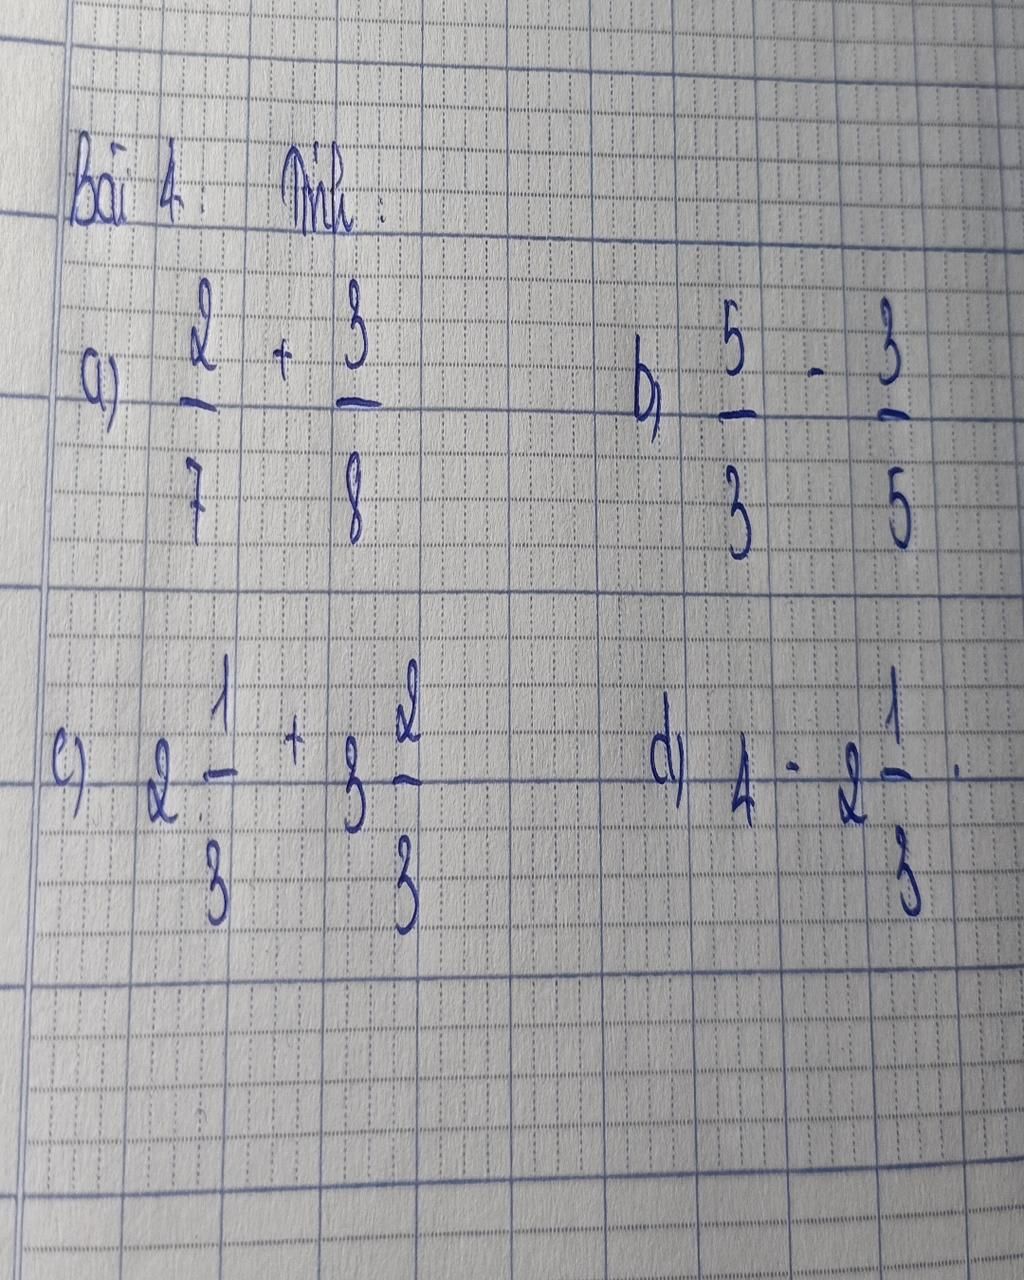 Bài 4: Tính:
a) 2/7 + 3/8 b) 5/3 - 3/5
c) 2 1/3 + 3 2/3 d) 4 - 2 1/3 .